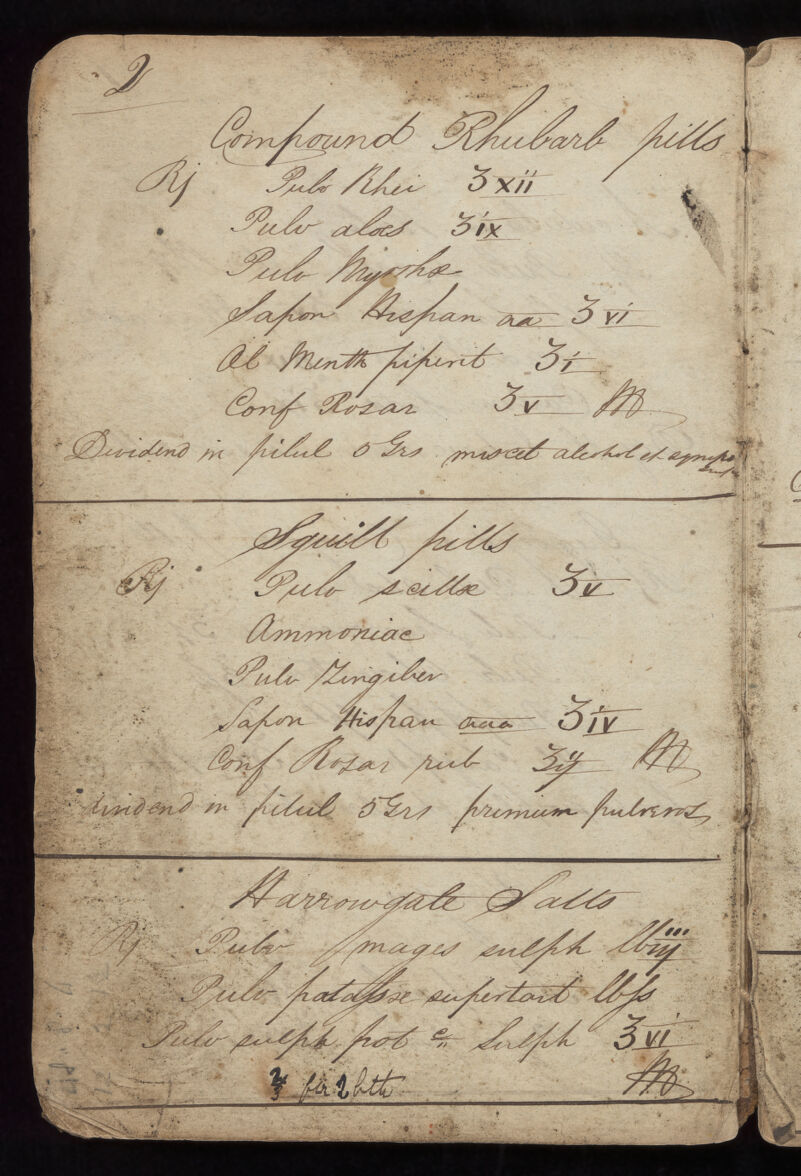 2
Compound Rhubarb pills
Rj Pulv Rhei ʒxii
Pulv aloes ʒix
Pulv Myrrhæ
Sapon Hispan aa ʒvi
Ol Menth piperit ʒi
Conf Rosar ʒv M
Dividend in pilul 5 Grs miscet alcohol et syrupo
Squill pills
Rj Pulv scillæ ʒv
Ammoniac
Pulv Zingiber
Sapon Hispan aaa ʒiv
Conf Rosar rub ʒij M
dividend in pilul 5 Grs primum pulveros
Harrowgate Salts
Rj Pulv mages sulph lbiij
Pulv potassæ supertart lbſs
Pulv sulph pot c Sulph ʒvi
per 2 bttl M